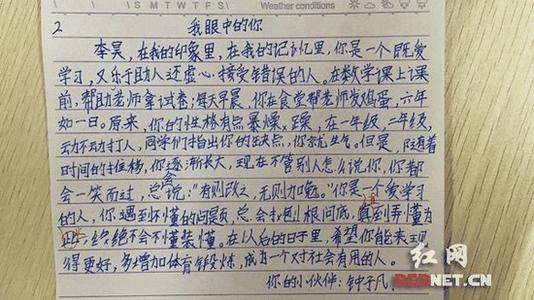 S M T W T F S Weather conditions
2 我眼中的你
李昊，在我的印象里，在我的记忆里，你是一个既爱
学习，又乐于助人还虚心接受错误的人。在数学课上课
前，帮助老师拿试卷；每天早晨，你在食堂帮老师发鸡蛋，六年
如一日。原来，你的性格有点暴燥、躁，在一年级，二年级，
动不动打人，同学们指出你的缺点，你就生气。但是，随着
时间的推移，你逐渐长大，现在不管别人怎么说你，你都
会一笑而过，总会说："有则改之，无则加勉。"你是一个爱学习
的人，你遇到不懂的问题，总会刨根问底，直到弄懂为
止，绝不会不懂装懂。在以后的日子里，希望你能表现
得更好，多增加体育锻炼，成为一个对社会有用的人。
你的小伙伴：钟于凡
红网
REDNET.CN